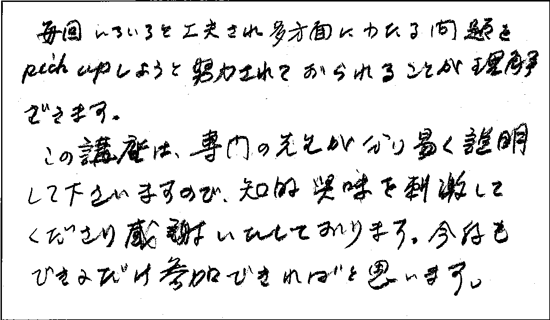 毎回いろいろと工夫され多方面にわたる問題を
pick upしようと努力されておられることが理解
できます。
この講座は、専門の先生が分り易く説明
して下さいますので、知的興味を刺激して
くださり感謝いたしております。今後も
できるだけ参加できればと思います。